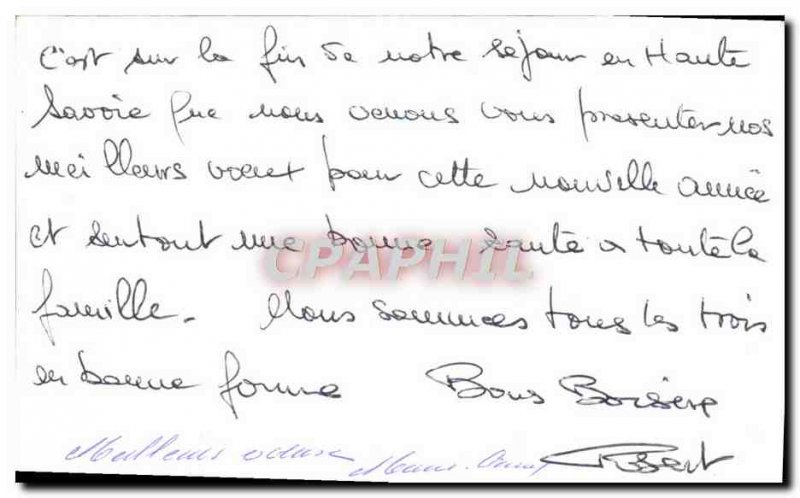 c'est sur la fin de notre séjour en Haute
Savoie que nous venons vous presenter nos
meilleurs voeux pour cette nouvelle année
et surtout une bonne santé a toute la
CPAPHIL
famille. Nous sommes tous les trois
en bonne forme Bons Baisers
Meilleurs voeux
Robert